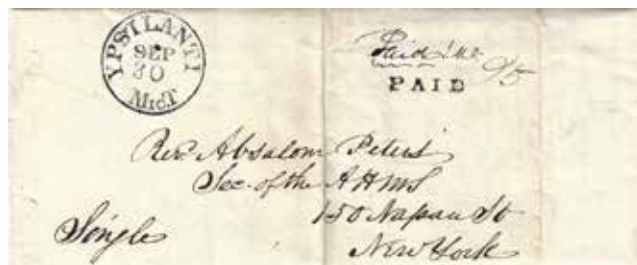 YPSILANTI
SEP
30
MicT
Paid
PAID
Revd Absalom Peters
Sec. of the AHMS
150 Nassau St
New York
Single